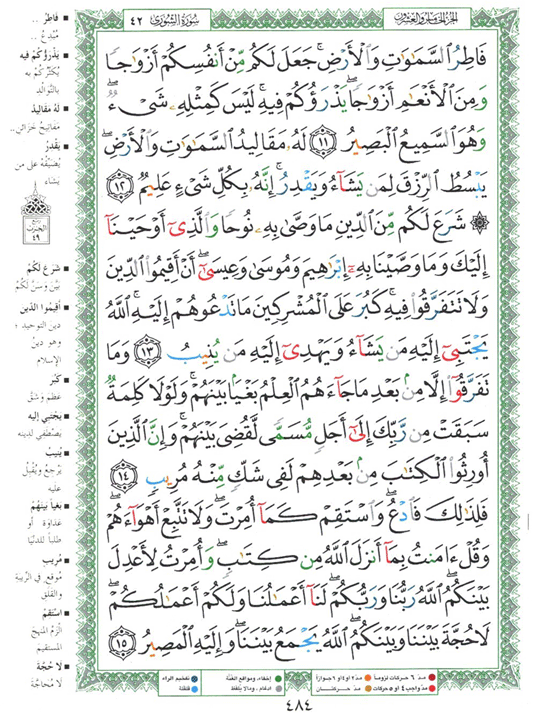 الجزء الخامس والعشرون
سورة الشورى
٤٢
فَاطِرُ ٱلسَّمَٰوَٰتِ وَٱلْأَرْضِ ۚ جَعَلَ لَكُم مِّنْ أَنفُسِكُمْ أَزْوَٰجًا
وَمِنَ ٱلْأَنْعَٰمِ أَزْوَٰجًا ۖ يَذْرَؤُكُمْ فِيهِ ۚ لَيْسَ كَمِثْلِهِۦ شَىْءٌ ۖ
وَهُوَ ٱلسَّمِيعُ ٱلْبَصِيرُ ١١ لَهُۥ مَقَالِيدُ ٱلسَّمَٰوَٰتِ وَٱلْأَرْضِ ۖ
يَبْسُطُ ٱلرِّزْقَ لِمَن يَشَآءُ وَيَقْدِرُ ۚ إِنَّهُۥ بِكُلِّ شَىْءٍ عَلِيمٌ ١٢
۞ شَرَعَ لَكُم مِّنَ ٱلدِّينِ مَا وَصَّىٰ بِهِۦ نُوحًا وَٱلَّذِىٓ أَوْحَيْنَآ
إِلَيْكَ وَمَا وَصَّيْنَا بِهِۦٓ إِبْرَٰهِيمَ وَمُوسَىٰ وَعِيسَىٰٓ ۖ أَنْ أَقِيمُوا۟ ٱلدِّينَ
وَلَا تَتَفَرَّقُوا۟ فِيهِ ۚ كَبُرَ عَلَى ٱلْمُشْرِكِينَ مَا تَدْعُوهُمْ إِلَيْهِ ۚ ٱللَّهُ
يَجْتَبِىٓ إِلَيْهِ مَن يَشَآءُ وَيَهْدِىٓ إِلَيْهِ مَن يُنِيبُ ١٣ وَمَا
تَفَرَّقُوٓا۟ إِلَّا مِنۢ بَعْدِ مَا جَآءَهُمُ ٱلْعِلْمُ بَغْيًۢا بَيْنَهُمْ ۚ وَلَوْلَا كَلِمَةٌ
سَبَقَتْ مِن رَّبِّكَ إِلَىٰٓ أَجَلٍ مُّسَمًّى لَّقُضِىَ بَيْنَهُمْ ۚ وَإِنَّ ٱلَّذِينَ
أُورِثُوا۟ ٱلْكِتَٰبَ مِنۢ بَعْدِهِمْ لَفِى شَكٍّ مِّنْهُ مُرِيبٍ ١٤
فَلِذَٰلِكَ فَٱدْعُ ۖ وَٱسْتَقِمْ كَمَآ أُمِرْتَ ۖ وَلَا تَتَّبِعْ أَهْوَآءَهُمْ ۖ
وَقُلْ ءَامَنتُ بِمَآ أَنزَلَ ٱللَّهُ مِن كِتَٰبٍ ۖ وَأُمِرْتُ لِأَعْدِلَ
بَيْنَكُمُ ۖ ٱللَّهُ رَبُّنَا وَرَبُّكُمْ ۖ لَنَآ أَعْمَٰلُنَا وَلَكُمْ أَعْمَٰلُكُمْ ۖ
لَا حُجَّةَ بَيْنَنَا وَبَيْنَكُمُ ۖ ٱللَّهُ يَجْمَعُ بَيْنَنَا ۖ وَإِلَيْهِ ٱلْمَصِيرُ ١٥
فَاطِرُ ..
مُبْدِعُ ..
يَذْرَؤُكُمْ فِيهِ
يُكَثِّرُكُمْ بِهِ
بالتَّوالُد
لَهُ مَقَالِيدُ
مَفَاتِيحُ خَزَائِن ..
يَقْدِرُ
يُضَيِّقُهُ على من
يشاء
ربع
الحزب
٤٩
شَرَعَ لَكُمْ
بَيَّنَ وسَنَّ لَكُمْ
أقيمُوا الدّين
دين التوحيد ؛
وهو دينُ
الإسلام
كَبُرَ
عَظُمَ وشَقَّ
يَجْتَبِي إليه
يَصْطَفِي لدينه
يُنِيبُ
يَرجعُ ويُقْبِلُ
عليه
بغيا بينهُمْ
عداوةً أو
طلباً للدُّنْيا
مُرِيبٍ
مُوقِعٍ في الرِّيبَةِ
والقَلَق
اسْتَقِمْ
الْزَم المنهجَ
المستقيمَ
لا حُجَّةَ
لا مُحَاجَّةَ
مدّ ٦ حركات لزوماً
مدّ ٢ أو ٤ أو ٦ جوازاً
إخفاء، ومواقع الغُنَّة
تفخيم الراء
مدّ واجب ٤ أو ٥ حركات
مدّ حركتان
ادغام، وما لا يلفظ
قلقلة
٤٨٤